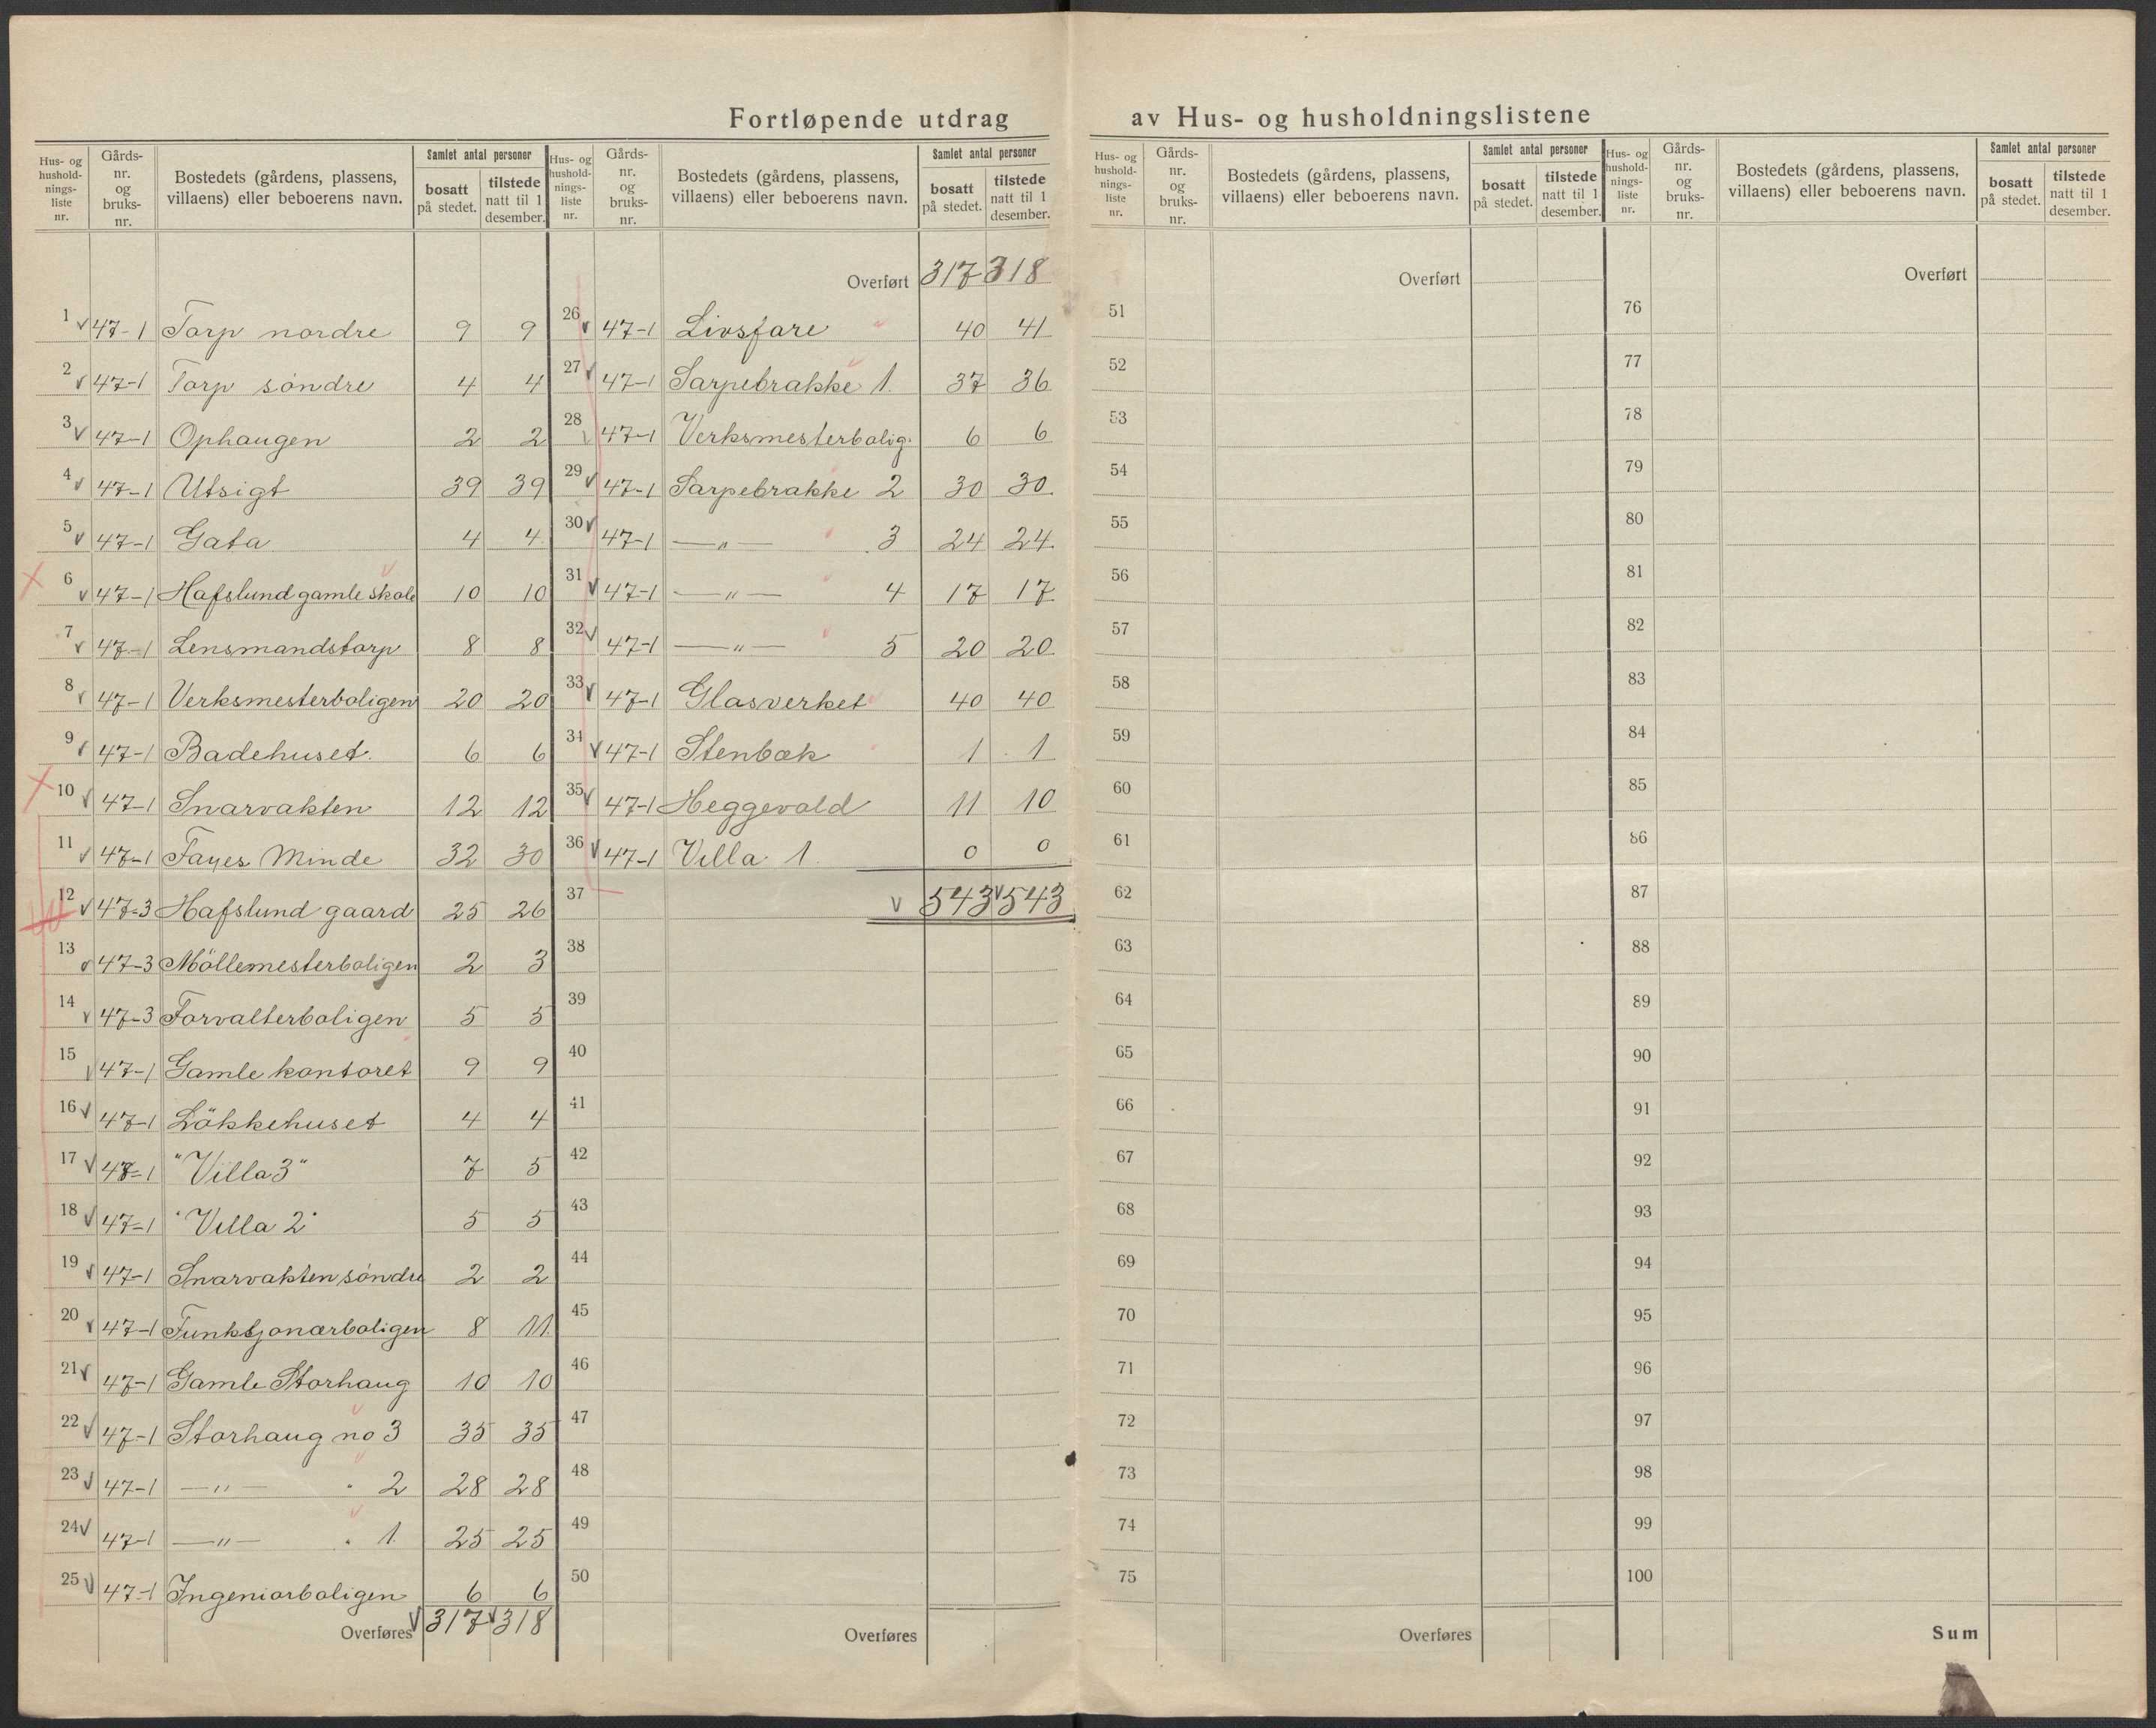 Fortløpende utdrag av Hus- og husholdningslistene
Hus- og husholdningsliste nr. | Gårds-nr. og bruks-nr. | Bostedets (gårdens, plassens, villaens) eller beboerens navn. | Samlet antal personer | bosatt på stedet. | tilstede natt til 1 desember.
1 47-1 Torp nordre 9 9
2 47-1 Torp söndre 4 4
3 47-1 Ophaugen 2 2
4 47-1 Utsigt 39 39
5 47-1 Gata 4 4
6 47-1 Hafslund gamle skole 10 10
7 47-1 Lensmandstorp 8 8
8 47-1 Verksmesterboligen 20 20
9 47-1 Badehuset. 6 6
10 47-1 Snarvakten 12 12
11 47-1 Fayes Minde 32 30
12 47-3 Hafslund gaard 25 26
13 47-3 Möllemesterboligen 2 3
14 47-3 Forvalterboligen 5 5
15 47-1 Gamle kontoret 9 9
16 47-1 Lökkehuset 4 4
17 47-1 "Villa 3" 7 5
18 47-1 "Villa 2" 5 5
19 47-1 Snarvakten söndre 2 2
20 47-1 Funktjonærboligen 8 11
21 47-1 Gamle Storhaug 10 10
22 47-1 Storhaug no 3 35 35
23 47-1 —"— " 2 28 28
24 47-1 —"— " 1. 25 25
25 47-1 Ingeniørboligen 6 6
Overføres 317 318
Hus- og husholdningsliste nr. | Gårds-nr. og bruks-nr. | Bostedets (gårdens, plassens, villaens) eller beboerens navn. | Samlet antal personer | bosatt på stedet. | tilstede natt til 1 desember.
Overført 317 318
26 47-1 Livsfare 40 41
27 47-1 Sarpebrakke 1. 37 36
28 47-1 Verksmesterbolig. 6 6
29 47-1 Sarpebrakke 2 30 30
30 47-1 —"— 3 24 24
31 47-1 —"— 4 17 17
32 47-1 —"— 5 20 20
33 47-1 Glasverket 40 40
34 47-1 Stenbæk 1 1
35 47-1 Heggevold 11 10
36 47-1 Villa 1 0 0
37 543 543
38
39
40
41
42
43
44
45
46
47
48
49
50
Overføres
Hus- og husholdningsliste nr. | Gårds-nr. og bruks-nr. | Bostedets (gårdens, plassens, villaens) eller beboerens navn. | Samlet antal personer | bosatt på stedet. | tilstede natt til 1 desember.
Overført
51
52
53
54
55
56
57
58
59
60
61
62
63
64
65
66
67
68
69
70
71
72
73
74
75
Overføres
Hus- og husholdningsliste nr. | Gårds-nr. og bruks-nr. | Bostedets (gårdens, plassens, villaens) eller beboerens navn. | Samlet antal personer | bosatt på stedet. | tilstede natt til 1 desember.
Overført
76
77
78
79
80
81
82
83
84
85
86
87
88
89
90
91
92
93
94
95
96
97
98
99
100
Sum